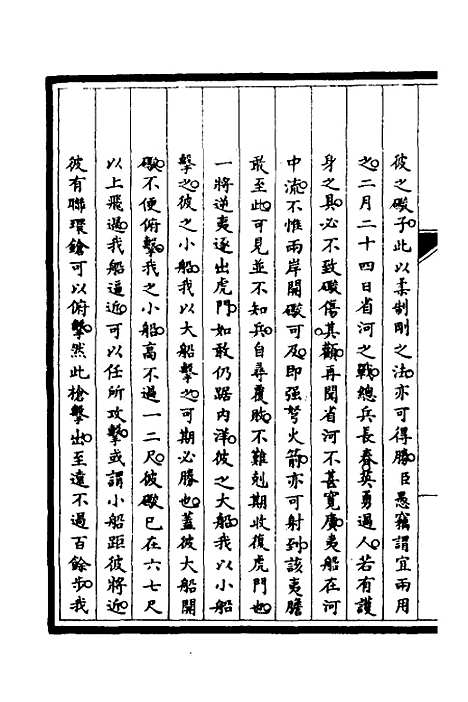 彼之礮子。此以柔制剛之法。亦可得勝。臣愚竊謂宜兩用
之。二月二十四日省河之戰。總兵長春英勇過人。若有護
身之具。必不致礮傷其顴。再聞省河不甚寬廣。夷船在河
中流。不惟兩岸開礮可及。即强弩火箭亦可射到。該夷膽
敢至此。可見並不知兵。自尋覆敗。不難剋期收復虎門也。
一將逆夷逐出虎門。如敢仍踞內洋。彼之大船。我以小船
擊之。彼之小船。我以大船擊之。可期必勝也。蓋彼大船開
礮。不便俯擊。我之小船。高不過一二尺。彼礮已在六七尺
以上飛過。我船逼近。可以任所攻擊。或謂小船距彼將近。
彼有聯環鎗可以俯擊。然此槍擊出。至遠不過百餘步。我